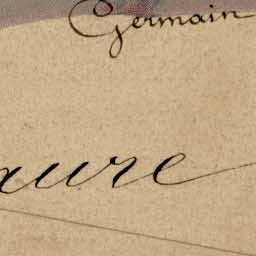 Germain
aure